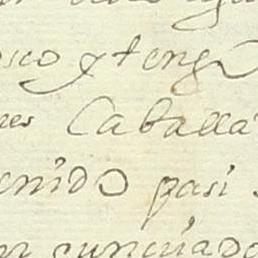 osco y teng
res Caballa
enido pasi
cunuado